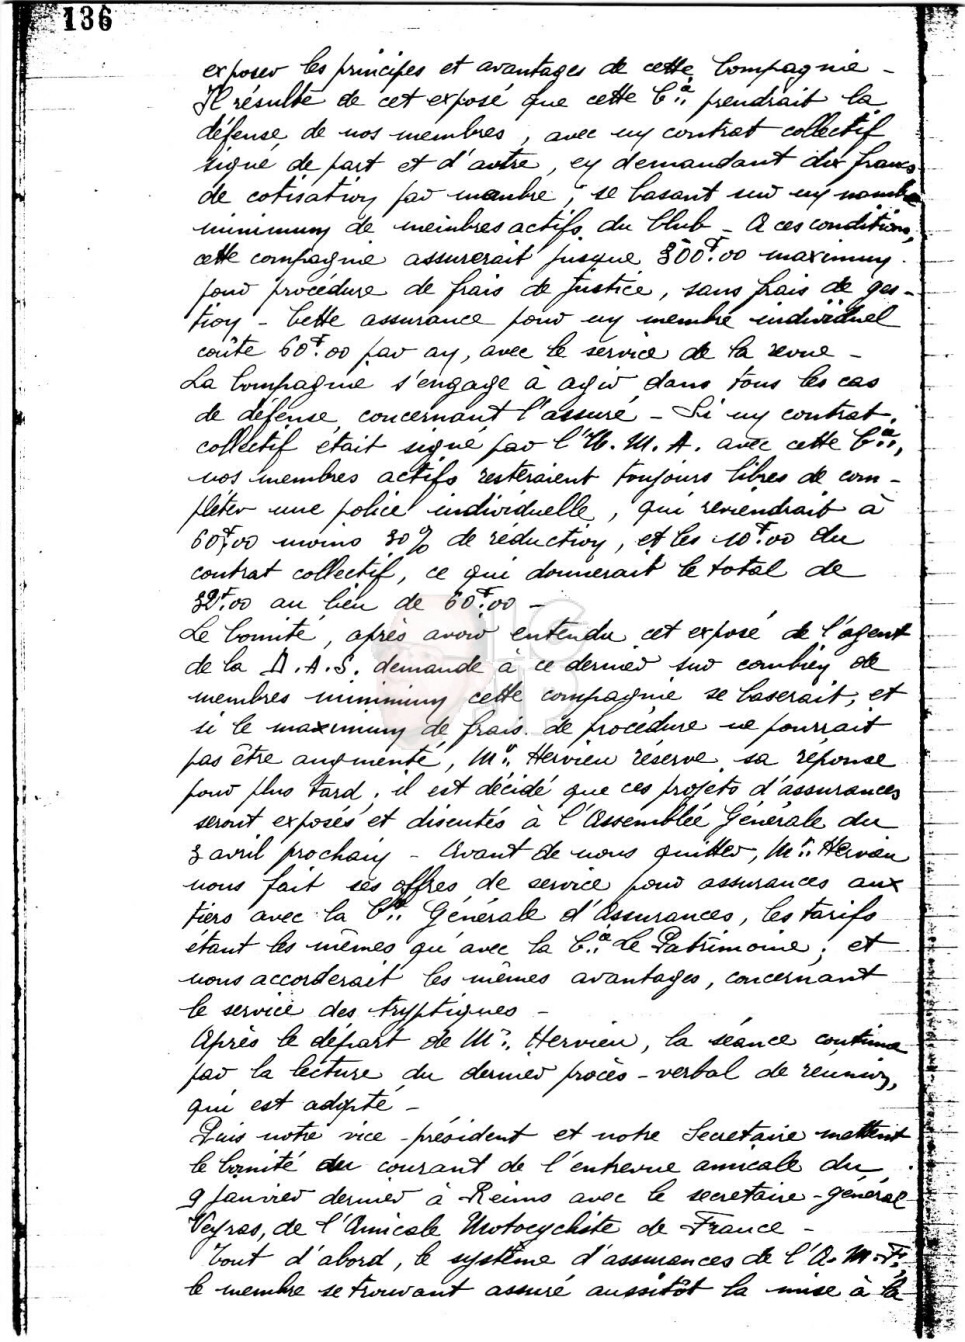 136
exposer les principes et avantages de cette Compagnie -
Il résulte de cet exposé que cette Cie prendrait la
défense de nos membres, avec un contrat collectif
signé de part et d'autre, en demandant dix francs
de cotisation par membre, se basant sur un nombre
minimum de membres actifs du Club - A ces conditions,
cette compagnie assurerait jusque 300f.00 maximum
pour procédure de frais de Justice, sans frais de ges-
tion - Cette assurance pour un membre individuel
coûte 60f.00 par an, avec le service de la revue -
La Compagnie s'engage à agir dans tous les cas
de défense, concernant l'assuré - Si un contrat
collectif était signé par l'U.M.A. avec cette Cie,
nos membres actifs resteraient toujours libres de com-
pléter une police individuelle, qui reviendrait à
60f.00 moins 30% de réduction, et les 10f.00 du
contrat collectif, ce qui donnerait le total de
32f.00 au lieu de 60f.00 -
Le Comité, après avoir entendu cet exposé de l'agent
de la D.A.S. demande à ce dernier sur combien de
membres minimum cette compagnie se baserait, et
si le maximum de frais de procédure ne pourrait
pas être augmenté, Mr. Hervieu réserve sa réponse
pour plus tard, il est décidé que ces projets d'assurances
seront exposés et discutés à l'Assemblée Générale du
3 avril prochain - Avant de nous quitter, Mr. Hervieu
nous fait ses offres de service pour assurances aux
tiers avec la Cie Générale d'Assurances, les tarifs
étant les mêmes qu'avec la Cie Le Patrimoine, et
nous accorderait les mêmes avantages, concernant
le service des tryptiques -
Après le départ de Mr. Hervieu, la séance continue
par la lecture du dernier procès-verbal de réunion,
qui est adopté -
Puis notre vice-président et notre Secretaire mettent
le Comité au courant de l'entrevue amicale du
9 Janvier dernier à Reims avec le secretaire-général
Veyras, de l'Amicale Motocycliste de France -
Tout d'abord, le système d'assurances de l'A.M.F.,
le membre se trouvant assuré aussitôt la mise à la